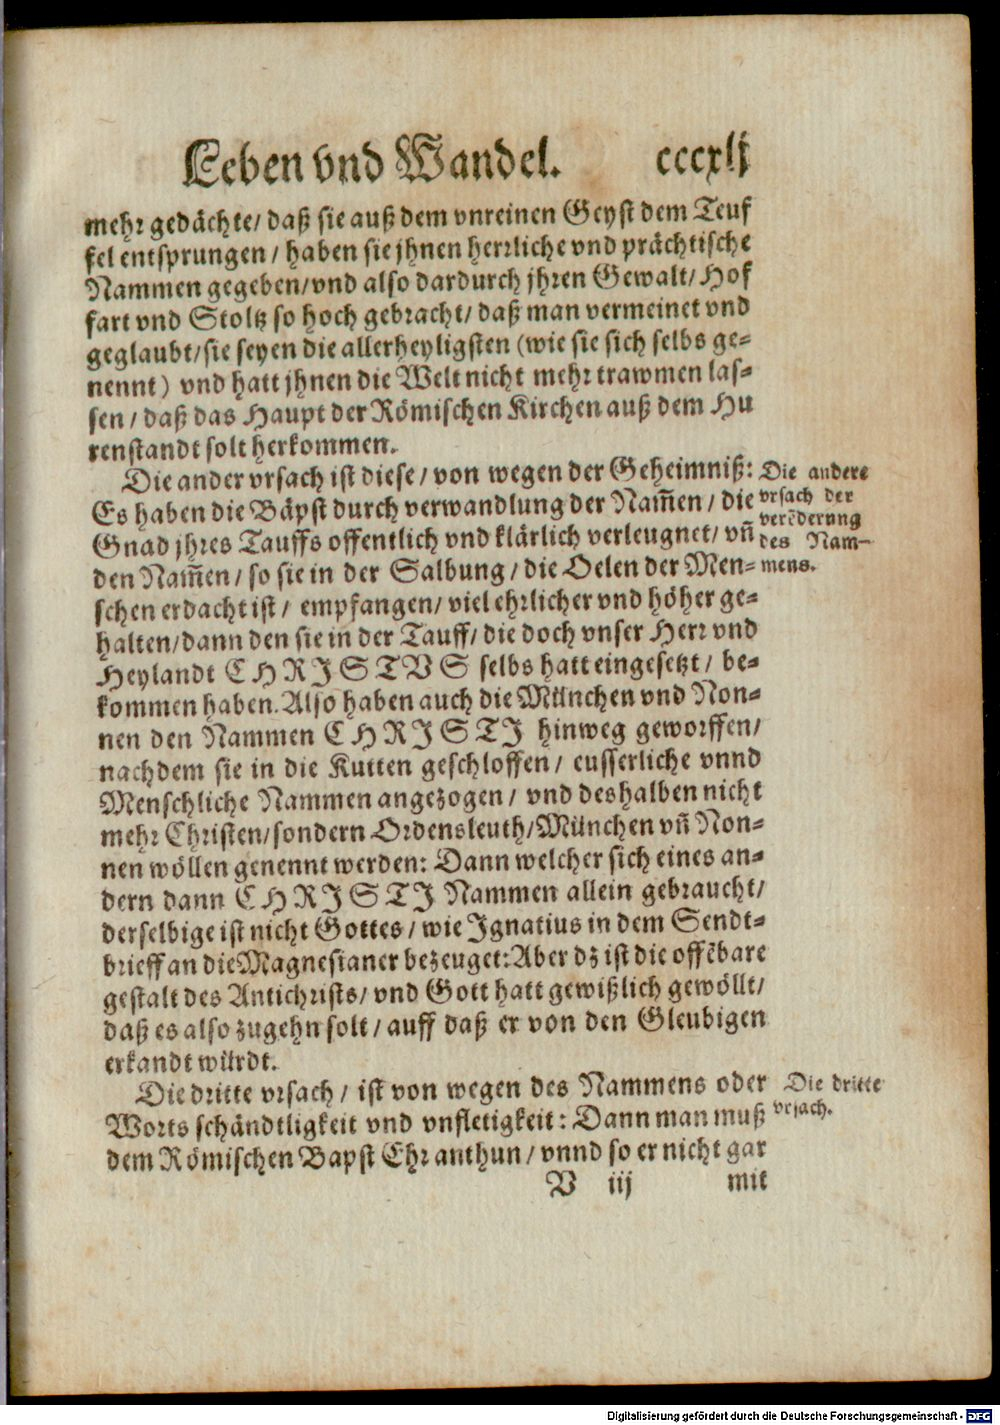 Leben vnd Wandel. cccxlj
mehr gedächte/ daß sie auß dem vnreinen Geyst dem Teuf
fel entsprungen / haben sie jhnen herrliche vnd prächtische
Nammen gegeben/ vnd also dardurch jhren Gewalt/ Hof
fart vnd Stoltz so hoch gebracht/ daß man vermeinet vnd
geglaubt/ sie seyen die allerheyligsten (wie sie sich selbs ge-
nennt) vnd hatt jhnen die Welt nicht mehr trawmen las-
sen / daß das Haupt der Römischen Kirchen auß dem Hu
renstandt solt herkommen.
Die ander vrsach ist diese / von wegen der Geheimniß:
Es haben die Bäpst durch verwandlung der Nam̃en / die
Gnad jhres Tauffs offentlich vnd klärlich verleugnet/ vñ
den Nam̃en / so sie in der Salbung / die Oelen der Men-
schen erdacht ist / empfangen/ viel ehrlicher vnd höher ge-
halten/ dann den sie in der Tauff/ die doch vnser Herr vnd
Heylandt CHRISTVS selbs hatt eingesetzt / be-
kommen haben. Also haben auch die München vnd Non-
nen den Nammen CHRISTI hinweg geworffen/
nachdem sie in die Kutten geschloffen / eusserliche vnnd
Menschliche Nammen angezogen / vnd deshalben nicht
mehr Christen/ sondern Ordensleuth/ München vñ Non-
nen wöllen genennt werden: Dann welcher sich eines an-
dern dann CHRISTI Nammen allein gebraucht/
derselbige ist nicht Gottes / wie Ignatius in dem Sendt-
brieff an die Magnesianer bezeuget: Aber dz ist die offẽbare
gestalt des Antichrists/ vnd Gott hatt gewißlich gewöllt/
daß es also zugehn solt / auff daß er von den Gleubigen
erkandt würdt.
Die dritte vrsach / ist von wegen des Nammens oder
Worts schändtligkeit vnd vnfletigkeit: Dann man muß
dem Römischen Bapst Ehr anthun / vnnd so er nicht gar
V iij mit
Die andere
vrsach der
verẽderung
des Nam-
mens.
Die dritte
vrsach.
Digitalisierung gefördert durch die Deutsche Forschungsgemeinschaft - DFG